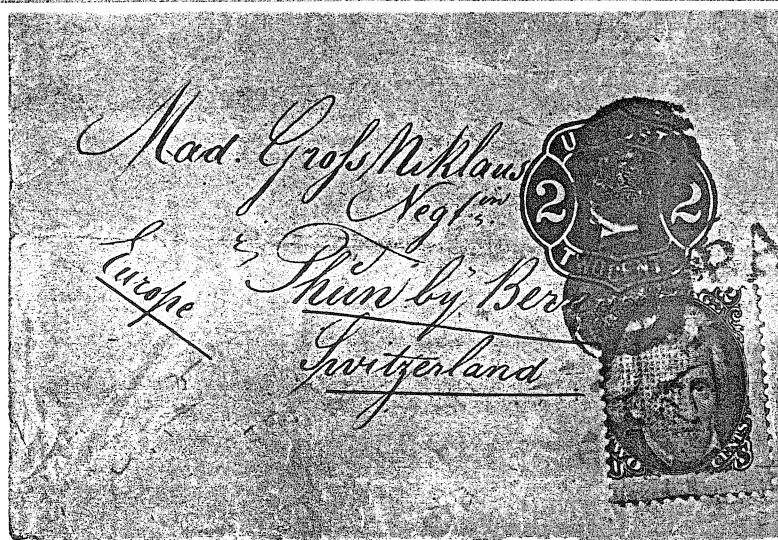 Mad. Groſs Niklaus
Negt.in
Thun by Bern
Switzerland
Europe
U
2 2
CENT
PA
U CENTS